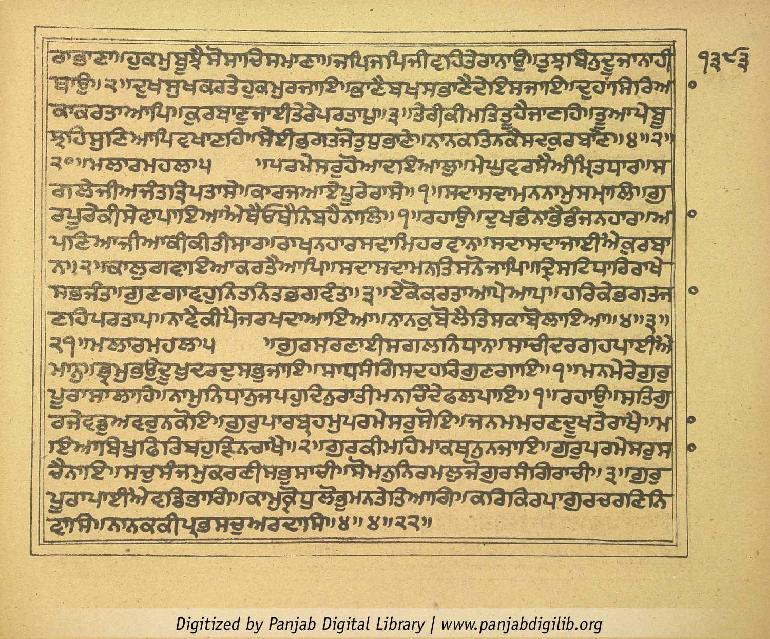 ਰਾਭਾਣਾ॥ਹੁਕਮੁਬੂਝੈਸੋਸਾਚਿਸਮਾਣਾ॥ਜਪਿਜਪਿਜੀਵਹਿਤੇਰਾਨਾਉ॥ਤੁਝਬਿਨੁਦੂਜਾਨਾਹੀ ੧੩੯੩
ਥਾਉ॥੨॥ਦੁਖਸੁਖਕਰਤੇਹੁਕਮੁਰਜਾਇ॥ਭਾਣੈਬਖਸਭਾਣੈਦੇਇਸਜਾਇ॥ਦੁਹਾਂਸਿਰਿਆ
ਕਾਕਰਤਾਆਪਿ॥ਕੁਰਬਾਣੁਜਾਈਤੇਰੇਪਰਤਾਪ॥੩॥ਤੇਰੀਕੀਮਤਿਤੂਹੈਜਾਣਹਿ॥ਤੂਆਪੇਬੂ
ਝਹਿਸੁਣਿਆਪਿਵਖਾਣਹਿ॥ਸੇਈਭਗਤਜੋਤੁਧੁਭਾਣੇ॥ਨਾਨਕਤਿਨਕੈਸਦਕੁਰਬਾਣੇ॥੪॥੨॥
੨੦॥ਮਲਾਰਮਹਲਾ੫ ॥ਪਰਮੇਸਰੁਹੋਆਦਇਆਲੁ॥ਮੇਘੁਵਰਸੈਅੰਮ੍ਰਿਤਧਾਰ॥ਸ
ਗਲੇਜੀਅਜੰਤਤ੍ਰਿਪਤਾਸੇ॥ਕਾਰਜਆਏਪੂਰੇਰਾਸੇ॥੧॥ਸਦਾਸਦਾਮਨਨਾਮੁਸਮ੍ਹਾਲਿ॥ਗੁ
ਰਪੂਰੇਕੀਸੇਵਾਪਾਇਆਐਥੈਓਥੈਨਿਬਹੈਨਾਲਿ॥੧॥ਰਹਾਉ॥ਦੁਖੁਭੰਨਾਭੈਭੰਜਨਹਾਰ॥ਆ
ਪਣਿਆਜੀਆਕੀਕੀਤੀਸਾਰ॥ਰਾਖਨਹਾਰਸਦਾਮਿਹਰਵਾਨ॥ਸਦਾਸਦਾਜਾਈਐਕੁਰਬਾ
ਨ॥੨॥ਕਾਲੁਗਵਾਇਆਕਰਤੈਆਪਿ॥ਸਦਾਸਦਾਮਨਤਿਸਨੋਜਾਪਿ॥ਦ੍ਰਿਸਟਿਧਾਰਿਰਾਖੇ
ਸਭਿਜੰਤ॥ਗੁਣਗਾਵਹੁਨਿਤਨਿਤਭਗਵੰਤ॥੩॥ਏਕੋਕਰਤਾਆਪੇਆਪ॥ਹਰਿਕੇਭਗਤਜਾ
ਣਹਿਪਰਤਾਪ॥ਨਾਵੈਕੀਪੈਜਰਖਦਾਆਇਆ॥ਨਾਨਕੁਬੋਲੈਤਿਸਕਾਬੋਲਾਇਆ॥੪॥੩॥
੨੧॥ਮਲਾਰਮਹਲਾ੫ ॥ਗੁਰਸਰਣਾਈਸਗਲਨਿਧਾਨ॥ਸਾਚੀਦਰਗਹਪਾਈਐ
ਮਾਨੁ॥ਭ੍ਰਮੁਭਉਦੂਖੁਦਰਦੁਸਭੁਜਾਇ॥ਸਾਧਸੰਗਿਸਦਹਰਿਗੁਣਗਾਇ॥੧॥ਮਨਮੇਰੇਗੁਰੁ
ਪੂਰਾਸਾਲਾਹਿ॥ਨਾਮੁਨਿਧਾਨੁਜਪਹੁਦਿਨੁਰਾਤੀਮਨਚਿੰਦੇਫਲਪਾਇ॥੧॥ਰਹਾਉ॥ਸਤਿਗੁ
ਰਜੇਵਡੁਅਵਰੁਨਕੋਇ॥ਗੁਰੁਪਾਰਬ੍ਰਹਮੁਪਰਮੇਸਰੁਸੋਇ॥ਜਨਮਮਰਣਦੂਖਤੇਰਾਖੈ॥ਮਾ
ਇਆਬਿਖੁਫਿਰਿਬਹੁੜਿਨਚਾਖੈ॥੨॥ਗੁਰਕੀਮਹਿਮਾਕਥਨੁਨਜਾਇ॥ਗੁਰੁਪਰਮੇਸਰੁਸਾ
ਚੈਨਾਇ॥ਸਚੁਸੰਜਮੁਕਰਣੀਸਭੁਸਾਚੀ॥ਸੋਮਨੁਨਿਰਮਲੁਜੋਗੁਰਸੰਗਿਰਾਚੀ॥੩॥ਗੁਰੁ
ਪੂਰਾਪਾਈਐਵਡਭਾਗਿ॥ਕਾਮੁਕ੍ਰੋਧੁਲੋਭੁਮਨਤੇਤਿਆਗਿ॥ਕਰਿਕਿਰਪਾਗੁਰਚਰਣਿਨਿ
ਵਾਸਿ॥ਨਾਨਕਕੀਪ੍ਰਭਸਚੁਅਰਦਾਸਿ॥੪॥੪॥੨੨॥
Digitized by Panjab Digital Library | www.panjabdigilib.org